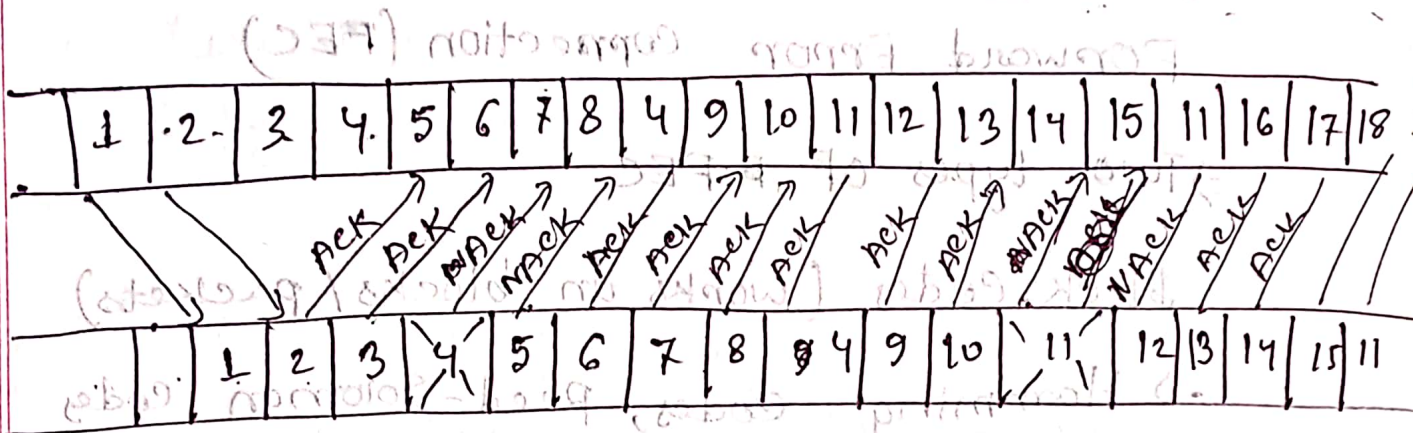 1 2 3 4 5 6 7 8 4 9 10 11 12 13 14 15 11 16 17 18
ACK ACK NACK NACK ACK ACK ACK ACK ACK ACK NACK NACK ACK ACK
1 2 3 4 5 6 7 8 4 9 10 11 12 13 14 15 11